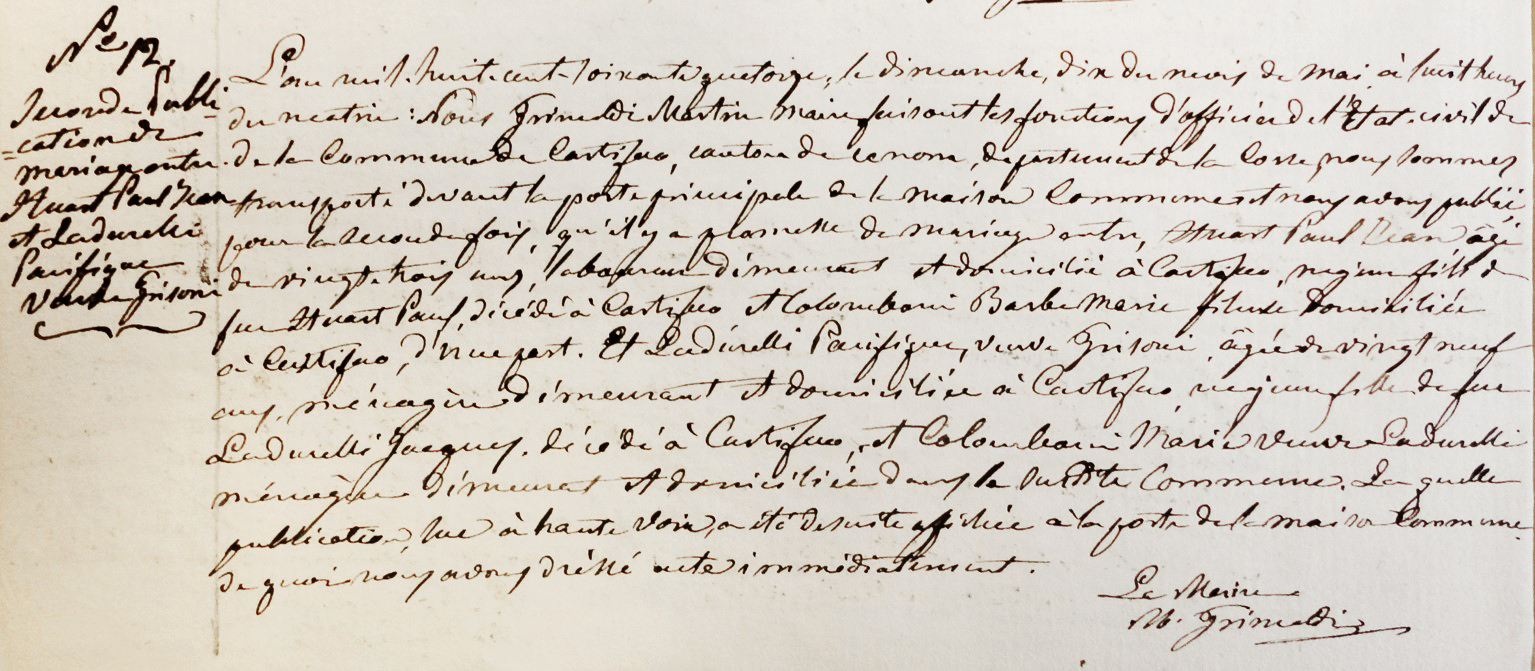 N° 12.
Seconde Publi-
-cation de
mariage entre
Stuart Paul Jean
et Ladurelli
Pacifique
veuve Grisoni
L'an mil-huit-cent-soixante quatorze, le dimanche, dix du mois de mai à huit heures
du matin : Nous Grimaldi Martin maire faisant les fonctions d'officier de l'État-civil de
de la Commune de Castifao, canton de , département de la Corse, nous sommes
transporté devant la porte principale de la maison Commune et nous avons publié
pour la seconde fois, qu'il y a promesse de mariage entre, Stuart Paul Jean âgé
de vingt trois ans, laboureur démeurant et domicilié à Castifao, majeur fils de
feu Stuart Paul, décédé à Castifao et Colombani Barbe Marie fileuse domiciliée
à Castifao, d'une part. Et Ladurelli Pacifique, veuve Grisoni, âgée de vingt neuf
ans, ménagère démeurant et domiciliée à Castifao, majeure fille de feu
Ladurelli Jacques, décédé à Castifao, et Colombani Marie veuve Ladurelli
ménagère démeurant et domiciliée dans la susdite Commune. La quelle
publication, lue à haute voix, a été de suite affichée à la porte de la maison Commune
de quoi nous avons dréssé acte immédiatement.
Le Maire
M. Grimaldi